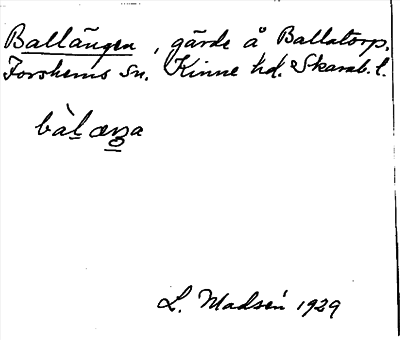 Ballängen, gärde å Ballatorp.
Forshems sn. Kinne hd. Skarab. l.
bàlæŋa
L. Madsén 1929